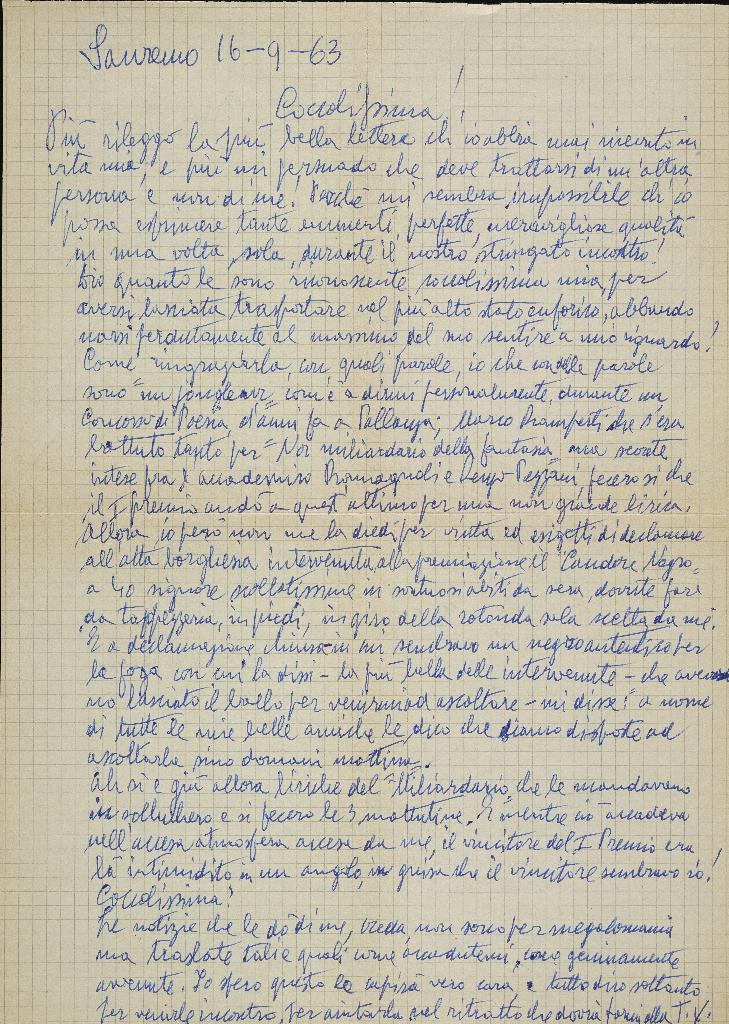 Sanremo 16-9-63
Coccolissima!
Più rileggo la più bella lettera ch'io abbia mai ricevuto in
vita mia, e più mi persuado che deve trattarsi di un'altra
persona e non di me. Perché mi sembra impossibile ch'io
possa esprimere tante eminenti, perfette, meravigliose qualità
in una volta sola, durante il nostro stringato incontro!
Dio quanto le sono riconoscente coccolissima mia, per
aversi lasciata trasportare nel più alto stato euforico, abbando
narsi perdutamente al massimo del suo sentire a mio riguardo!
Come ringraziarla, con quali parole, io che con delle parole
sono "un jongleur", com'è a dirmi personalmente, durante un
Concorso di Poesia, d'anni fa a Pallanza; Marco Ramperti che s'era
battuto tanto per "Noi miliardario della fantasia" ma secrete
intese fra l'accademico Romagnoli e Pezzani, fecero sì che
il I premio andò a quest'ultimo per una non grande lirica.
Allora io però non me la diedi per vinta ed esigetti di declamare
all'alta borghesia intervenuta alla premiazione il "Candore Negro"
a 40 signore scollatissime in sontuosi abiti da sera, dovute fare
da tappezzeria, in piedi, in giro della rotonda sala scelta da me.
E a declamazione chiusa in cui sembravo un negro autentico per
la foga con cui la dissi - la più bella delle intervenute - che aveva
no lasciato il ballo per venirmi ad ascoltare - mi disse: "a nome
di tutte le mie belle amiche le dico che siamo disposte ad
ascoltarla sino domani mattina".
Ah sì e giù allora liriche del "Miliardario" che le mandavano
in solluchero e si fecero le 3 mattutine. E mentre ciò accadeva
nell'accesa atmosfera accesa da me, il vincitore del I Premio era
là intimidito in un angolo, in guisa che il vincitore sembravo io!
Coccolissima!
Le notizie che le dò di me, creda, non sono per megalomania
ma traslate tali e quali come accadutemi, come genuinamente
avvenute. Io spero questo lo capirà vero cara e tutto dico soltanto
per venirle incontro, per aiutarla nel ritratto che dovrà fare alla T.V.